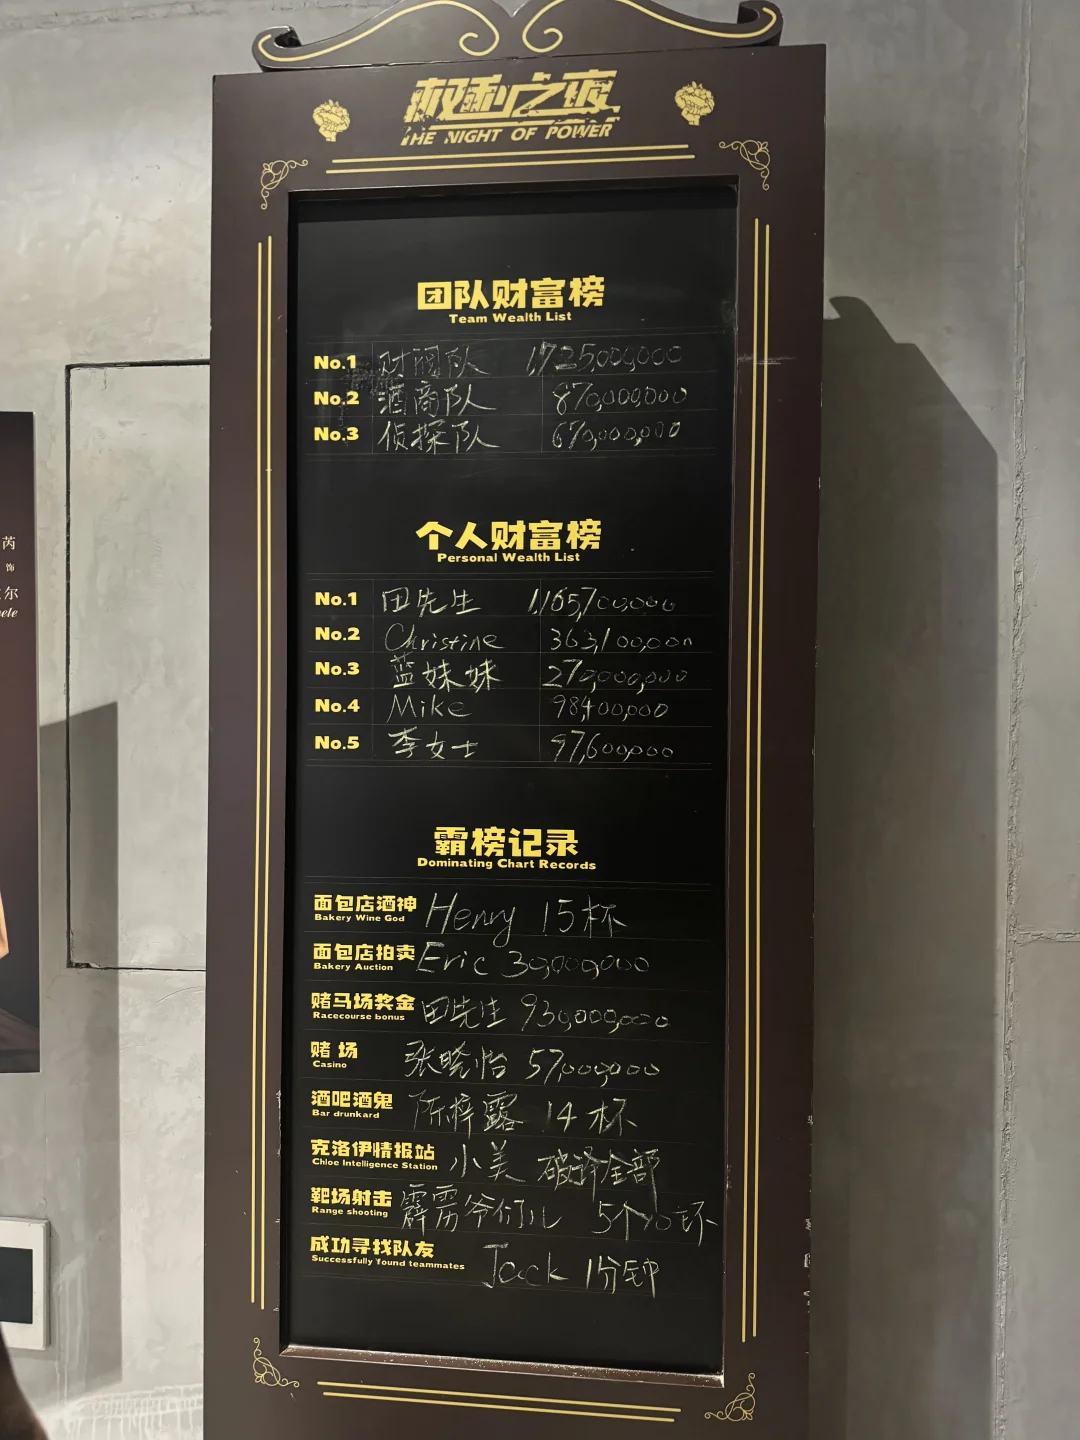 权利之夜
THE NIGHT OF POWER
团队财富榜
Team Wealth List
No.1 财阀队 1,725,000,000
No.2 酒商队 870,000,000
No.3 侦探队 670,000,000
个人财富榜
Personal Wealth List
No.1 田先生 1,165,700,000
No.2 Christine 363,100,000
No.3 蓝妹妹 270,000,000
No.4 Mike 98,400,000
No.5 李女士 97,600,000
霸榜记录
Dominating Chart Records
面包店酒神 Henry 15杯
Bakery Wine God
面包店拍卖 Eric 30,000,000
Bakery Auction
赌马场奖金 田先生 930,000,000
Racecourse bonus
赌场 张晓怡 57,000,000
Casino
酒吧酒鬼 陈梓露 14杯
Bar drunkard
克洛伊情报站 小美 破译全部
Chloe Intelligence Station
靶场射击 霹雳爷们儿 5个10环
Range shooting
成功寻找队友 Jack 1分钟
Successfully found teammates
芮
饰
尔